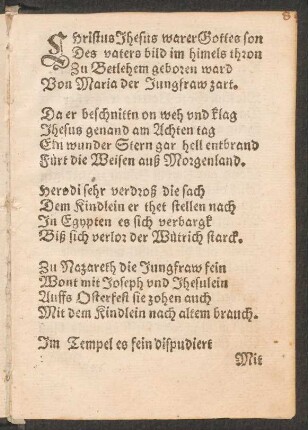 CHristus Jhesus warer Gottes son
Des vaters bild im himels thron
Zu Betlehem geboren ward
Von Maria der Jungfraw zart.
Da er beschnittn on weh vnd klag
Jhesus genand am Achten tag
Ein wunder Stern gar hell entbrand
Fürt die Weisen auß Morgenland.
Herodi sehr verdroß die sach
Dem Kindlein er thet stellen nach
In Egypten es sich verbargk
Biß sich verlor der Wütrich starck.
Zu Nazareth die Jungfraw fein
Wont mit Joseph vnd Jhesulein
Auffs Osterfest sie zohen auch
Mit dem Kindlein nach altem brauch.
Im Tempel es fein disputiert
Mit